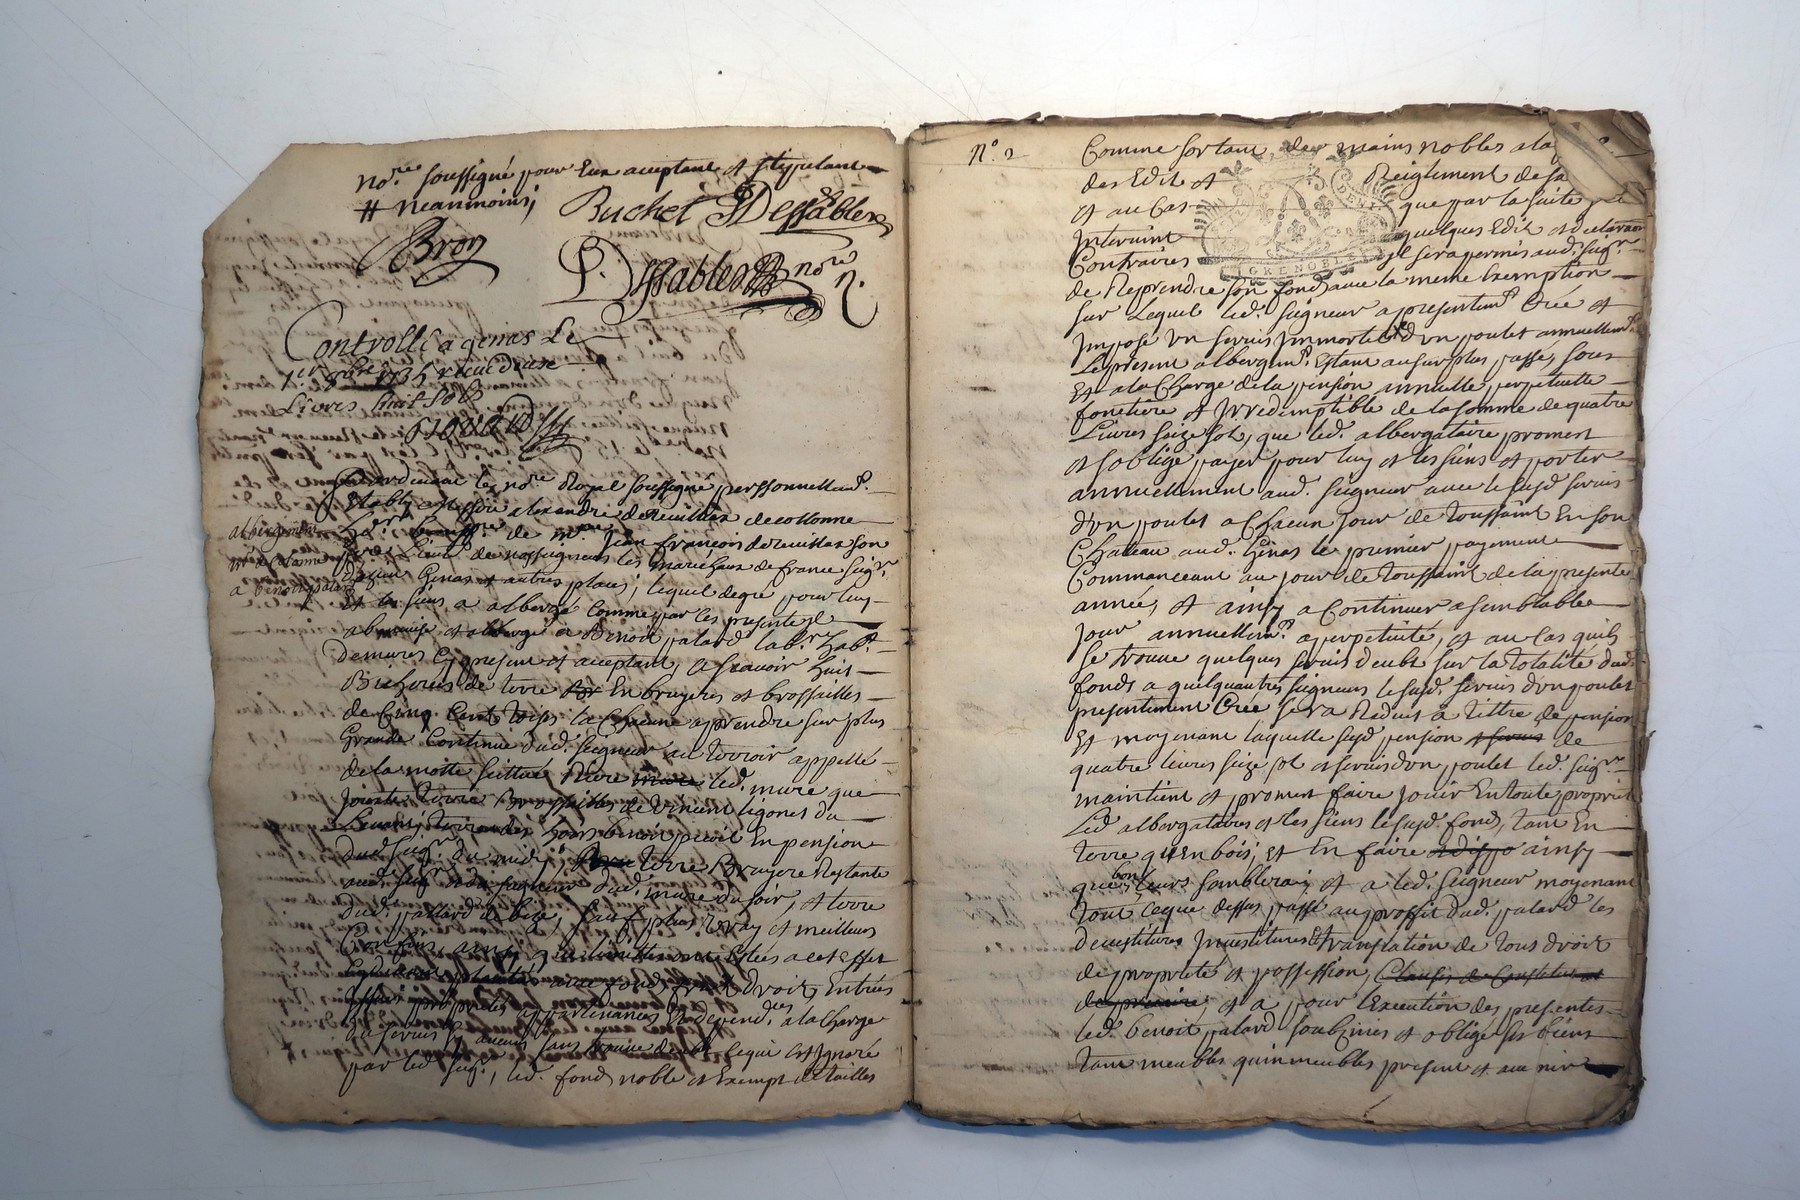 no.re soussigné pour Eux acceptant et stipulant
# neanmoins,
Buchet Dessables
Bron
P. Dessables no.re
R.
Controllé a genas Le
1.er 8bre 1735 receu douse
Livres huit sols
Pardevant le no.re Royal soussigné personnellem.t
Estably Messire alexandre de Reuillax de collonne
de m.re Jean françois de Reuillax son
Lieu.t de nosseigneurs les Maréchaux de france seig.r
Genas et autres places, lequel de gré pour luy
et les siens a albergé comme par ces presentes
albergement
m.r de Colonne
a benoit palard
et albergé a Benoit palard lab.r hab.t
demeures Cy present et acceptant, a scavoir huit
Bicherées de terre En bruyeres et brossailles
de Cinq Cent toises la Chacune a prendre sur plus
Grande Continue dud. seigneur au terroir appellé
de la motte scittué led. mure que
Jointe terre Brossailles de vincent ligonet du
Levant, terre des hoirs benoit En pension
dud. seig.r du midy, terre Bruyere Restante
aud. seig.r dud. mure du soir, et terre
dud. pallard de bize, sauf plus vray et meilleurs
Confins, ainsy que limittes ont Estées a cet effet
avec fonds, droit, Entrées
Issues proprietes appartenances Et depend.ces a la charge
du servis sy aucun sans trouve deub ce qui est Ignoré
par led. seig.r, led. fond noble et Exempt de tailles
N.o 2
Comme sortant des mains nobles a la
des Edit et Reiglement de sa
et au Cas que par la suite
Intervint quelques Edit et declaraon
Contraires Il sera permis aud. seig.r
GRENOBLE
de Reprendre son fond avec la meme Exemption
sur Lequel led. seigneur a presentem.t Créé et
Imposé Un servis Immortel d'un poulet annuellem.t
Le present albergem.t Estant au surplus passé, sous
Et a la Charge de la pension annuelle perpetuelle
fonciere et Irredimptible de la somme de quatre
Livres seize sols, que led. albergataire promet
et s'oblige payer pour luy et les siens et porter
annuellement aud. seigneur avec le susd. servis
d'un poulet a Chacun Jour de toussaint En son
Chateau aud. Genas le premier payement
Commanceant au jour de toussaint de la presente
année, et ainsy a Continuer a semblable
Jour annuellem.t a perpetuité, et au Cas quil
se trouve quelques servis deubt sur la totalité dud.
fonds a quelquautres seigneurs le susd. servis d'un poulet
presentement Créé sera Reduit a tittre de pension
Et moyenant laquelle susd. pension et servis de
quatre livres seize sol et servis d'un poulet led. seig.r
maintient et promet faire Jouir En toute proprieté
Led. albergataires et les siens le susd. fond, tant En
terre qu'En bois, Et En faire ainsy
que bon leurs semblera, et a led. seigneur moyenant
tout ceque dessus passé au proffit dud. palard les
devestitures Investitures Et translation de tous droit
de proprieté et possession, Clauses de Constitut et
de precaire, et a pour L'Execution des presentes
led. benoit palard soubzmis et obligé ses biens
tant meubles qu'immeubles present et avenir